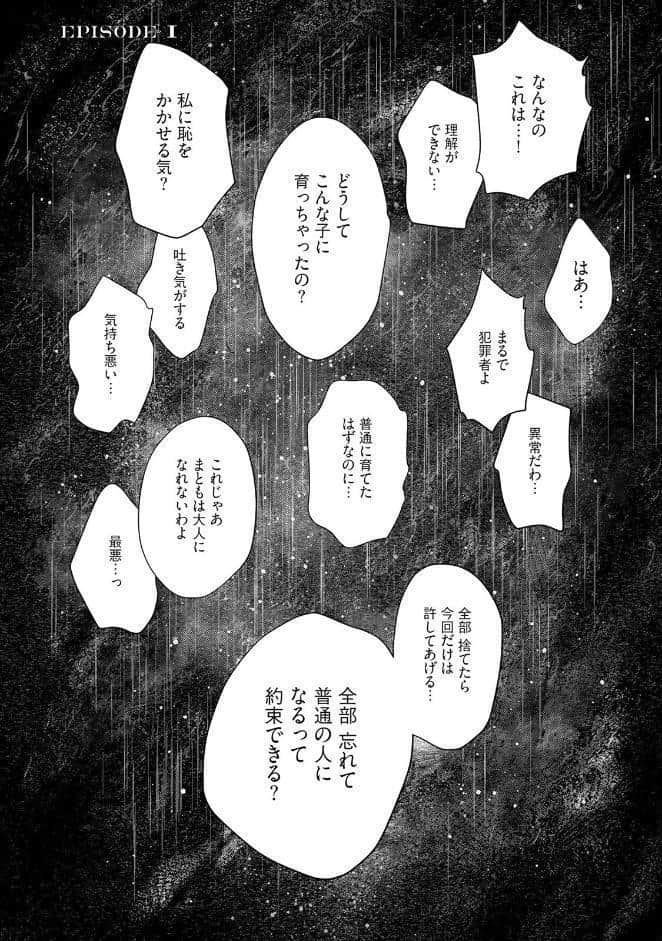 EPISODE 1
なんなの
これは…!
理解が
できない…
どうして
こんな子に
育っちゃったの?
私に恥を
かかせる気?
はあ…
まるで
犯罪者よ
吐き気がする
気持ち悪い…
異常だわ…
普通に育てた
はずなのに…
これじゃあ
まともは大人に
なれないわよ
最悪…っ
全部 捨てたら
今回だけは
許してあげる…
全部 忘れて
普通の人に
なるって
約束できる?